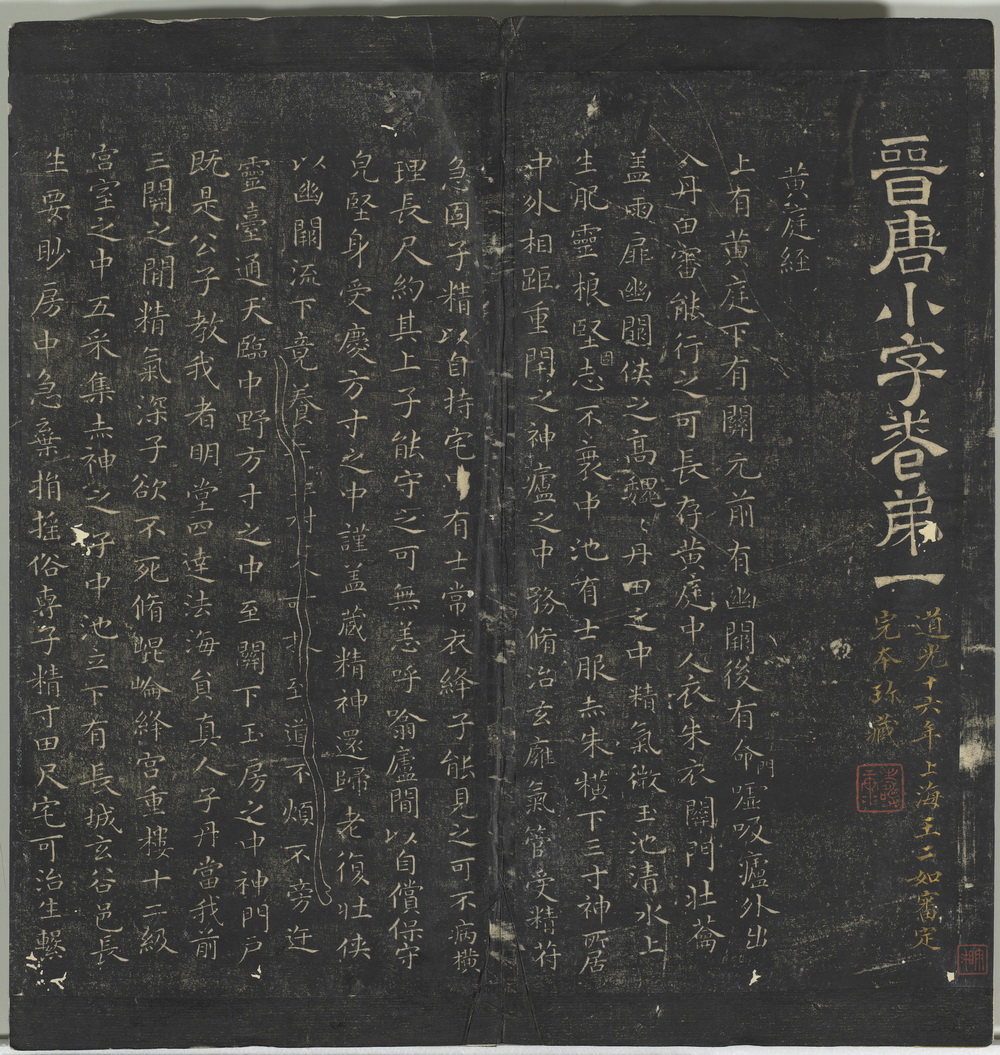 晉唐小字卷弟一
道光十六年上海王二如審定
完本珍藏
黃庭経
上有黃庭下有關元前有幽闕後有命門噓吸廬外出
入丹田審能行之可長存黃庭中人衣朱衣關門壯蘥
盖兩扉幽闕俠之高魏〻丹田之中精氣微玉池清水上
生肥靈根堅固志不衰中池有士服赤朱橫下三寸神所居
中外相距重閇之神廬之中務脩治玄廱氣管受精苻
急固子精以自持宅中有士常衣絳子能見之可不病橫
理長尺約其上子能守之可無恙呼噏廬間以自償保守
皃堅身受慶方寸之中謹盖藏精神還歸老復壯俠
以幽闕流下竟養至道不煩不旁迕
靈臺通天臨中野方寸之中至關下玉房之中神門戶
既是公子教我者明堂四達法海負真人子丹當我前
三關之閒精氣深子欲不死脩崐崘絳宮重樓十二級
宮室之中五采集赤神之子中池立下有長城玄谷邑長
生要眇房中急棄捐摇俗專子精寸田尺宅可治生繫